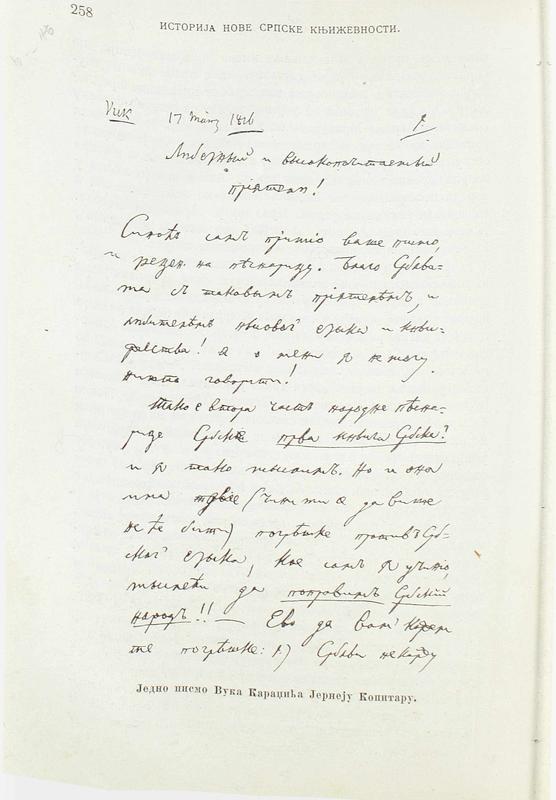 258
ИСТОРИЈА НОВЕ СРПСКЕ КЊИЖЕВНОСТИ.
Вук 17 1816 1.
и высокопочитаемый
пріятель!
Синоћъ самъ пріміо ваше писмо,
и рецен. на пѣснарицу. Благо Србльи-
ма съ таковымъ пріятелѣмъ, и
любителѣмъ ньіовогъ єзыка и кньи-
жества! а о мени я не могу
ништа говорити!
Тако є втора часть народне пѣсна-
рице Србске прва кньига Србска?
и я тако мыслимъ. Но и она
има двіе (чини ми се да више
не ће бити) погрѣшке противъ Срб-
скогъ єзыка, кое самъ я учініо,
мыслећи да поправимъ Србскій
народъ!! — Ево да вамъ кажем
те погрѣшке: 1.) Србльи не кажу
Једно писмо Вука Караџића Јернеју Копитару.